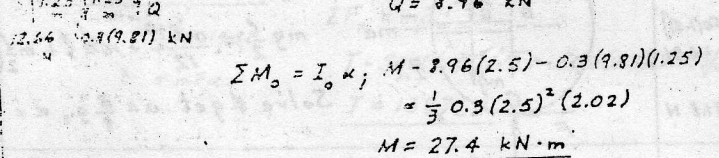 Q
12.66 0.3(9.81) kN
ΣM₀ = I₀ α; M - 8.96(2.5) - 0.3(9.81)(1.25)
= 1/3 0.3(2.5)² (2.02)
M = 27.4 kN·m